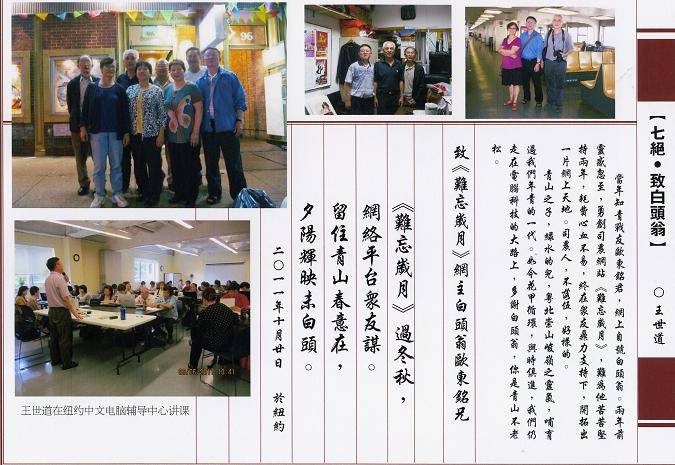 【七絕•致白頭翁】
○ 王世道
當年知青戰友歐東銘君，網上自號白頭翁。兩年前
靈感忽至，勇創司農網站《難忘歲月》，難為他苦苦堅
持兩年，耗費心血不易，終在眾友鼎力支持下，開拓出
一片網上天地。司農人，不簡伍，好樣的。
青山之子，綠水的兒，粵北崇山峻嶺之靈氣，哺育
過我們年青的一代。如今花甲循環，與時俱進，我們仍
走在電腦科技的大路上，多謝白頭翁，你是青山不老
松。
致《難忘歲月》網主白頭翁歐東銘兄
《難忘歲月》過冬秋，
網絡平台眾友謀。
留住青山春意在，
夕陽輝映未白頭。
二〇一一年十月廿日 於紐約
96
10:41
王世道在纽约中文电脑辅导中心讲课